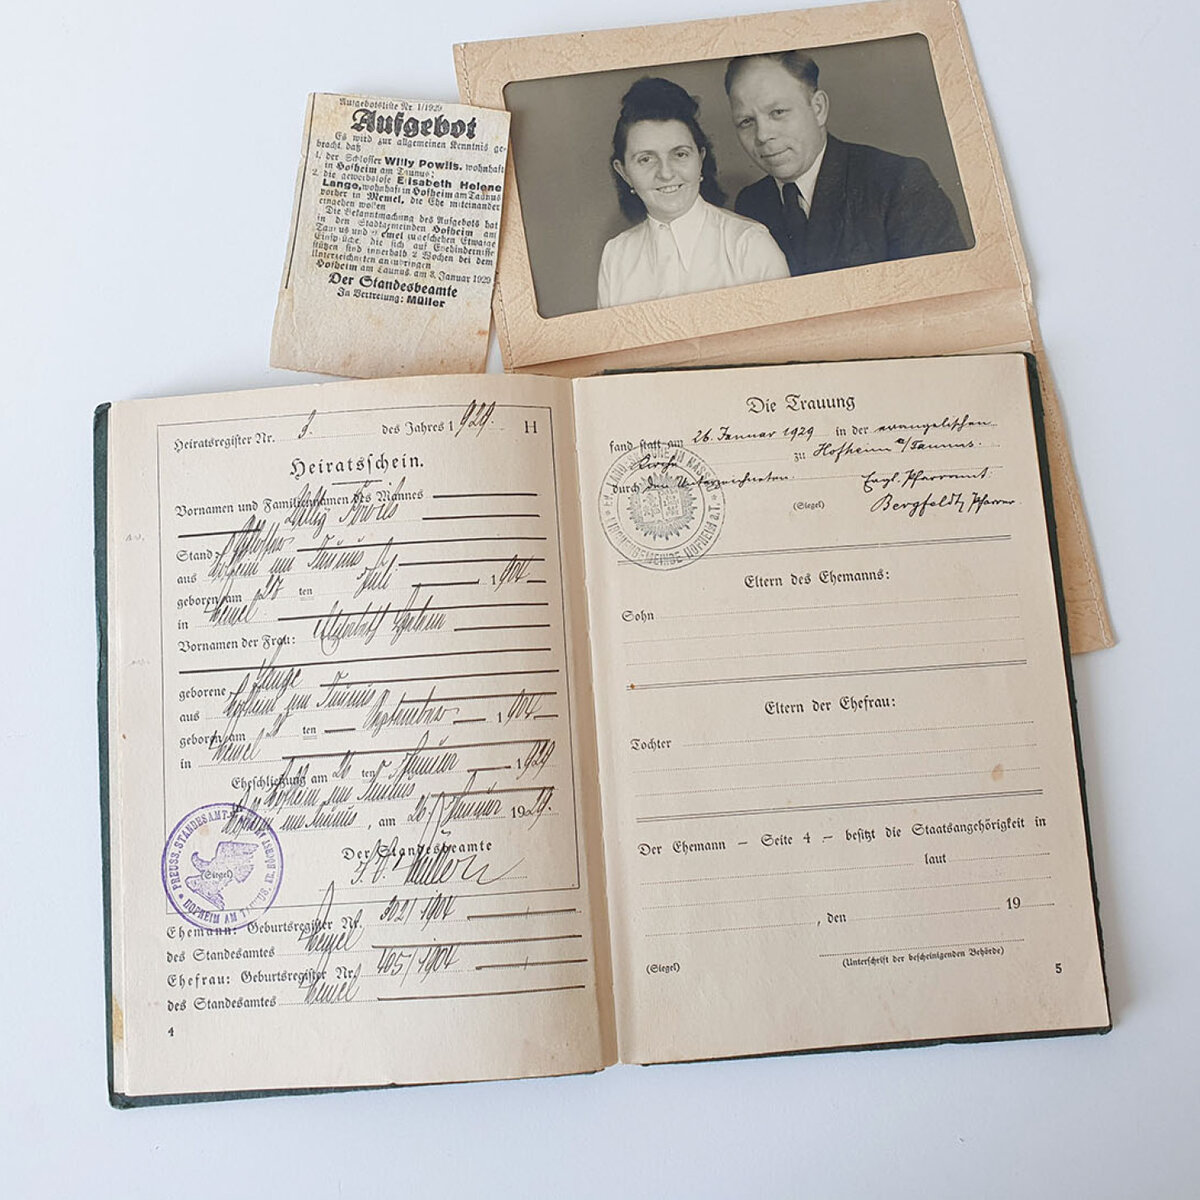 Aufgebotsliste Nr. 1/1929
Aufgebot
Es wird zur allgemeinen Kenntnis ge-
bracht, daß
1. der Schlosser Willy Powils, wohnhaft
in Hofheim am Taunus;
2. die gewerblose Elisabeth Helene
Lange, wohnhaft in Hofheim am Taunus
vorher in Memel, die Ehe miteinander
eingehen wollen
Die Bekanntmachung des Aufgebots hat
in den Stadtgemeinden Hofheim am
Taunus und Memel zu geschehen Etwaige
Einsprüche, die sich auf Ehehindernisse
stützen sind innerhalb 2 Wochen bei dem
Unterzeichneten anzubringen
Hofheim am Taunus, am 3. Januar 1929
Der Standesbeamte
In Vertretung: Müller
Heiratsregister Nr. 9. des Jahres 1929. H
Heiratsschein.
Vornamen und Familiennamen des Mannes
Willy Powils
Stand Schlosser
aus Hofheim am Taunus
geboren am ten Juli 1904
in Memel
Vornamen der Frau: Elisabeth Helene
geborene Lange
aus Hofheim am Taunus
geboren am ten September 1904
in Memel
Eheschließung am 26 ten Januar 1929
Hofheim am Taunus
Hofheim am Taunus, am 26. Januar 1929.
Der Standesbeamte
I. V. Müller
(Siegel)
PREUSS. STANDESAMT HOFHEIM AM TAUNUS
Ehemann: Geburtsregister Nr. 302/1904
des Standesamtes Memel
Ehefrau: Geburtsregister Nr. 405/1904
des Standesamtes Memel
4
Die Trauung
fand statt am 26. Januar 1929 in der evangelischen
Kirche zu Hofheim a/Taunus.
durch den Unterzeichneten.
Evgl. Pfarramt
(Siegel) Bergfeldt, Pfarrer
EV. LANDESKIRCHE IN NASSAU
KIRCHENGEMEINDE HOFHEIM a. T.
Eltern des Ehemanns:
Sohn
Eltern der Ehefrau:
Tochter
Der Ehemann – Seite 4 – besitzt die Staatsangehörigkeit in
laut
, den 19
(Siegel) (Unterschrift der bescheinigenden Behörde)
5